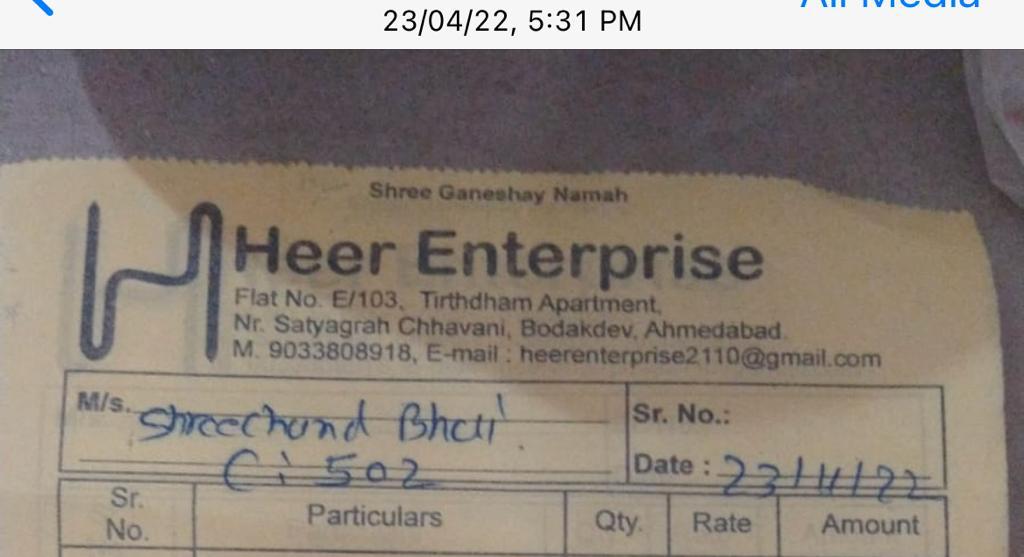 23/04/22, 5:31 PM
Shree Ganeshay Namah
Heer Enterprise
Flat No. E/103, Tirthdham Apartment,
Nr. Satyagrah Chhavani, Bodakdev, Ahmedabad.
M. 9033808918, E-mail : heerenterprise2110@gmail.com
M/s. Shreechand Bhai
Sr. No.:
C: 502
Date : 23/4/22
Sr. No. Particulars Qty. Rate Amount